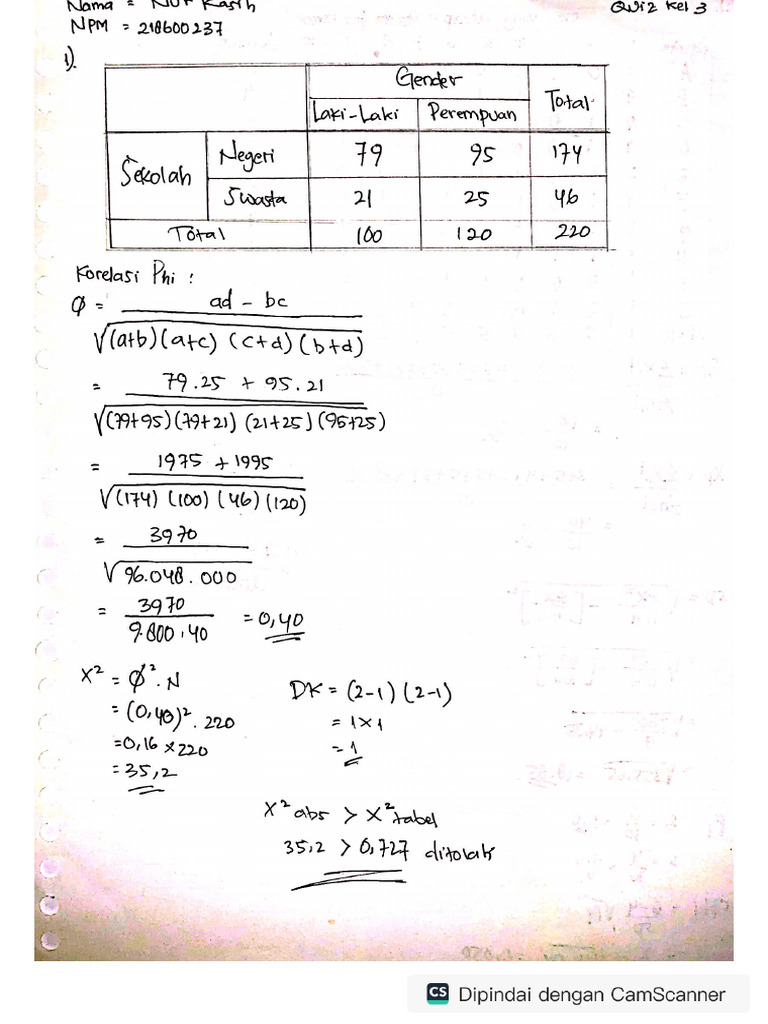 Nama = Nur Kasih
Quiz Kel 3
NPM = 218600237
1).
Gender
Total
Laki-Laki Perempuan
Sekolah
Negeri 79 95 174
Swasta 21 25 46
Total 100 120 220
Korelasi Phi :
Φ = ad - bc
√(a+b)(a+c) (c+d) (b+d)
= 79.25 + 95.21
√(79+95)(79+21) (21+25) (95+25)
= 1975 + 1995
√(174) (100) (46) (120)
= 3970
√96.048.000
= 3970
9.800,40
= 0,40
X² = Φ². N
= (0,40)². 220
= 0,16 × 220
= 35,2
DK = (2-1) (2-1)
= 1×1
= 1
X² abs > X² tabel
35,2 > 0,727 ditolak
CS Dipindai dengan CamScanner